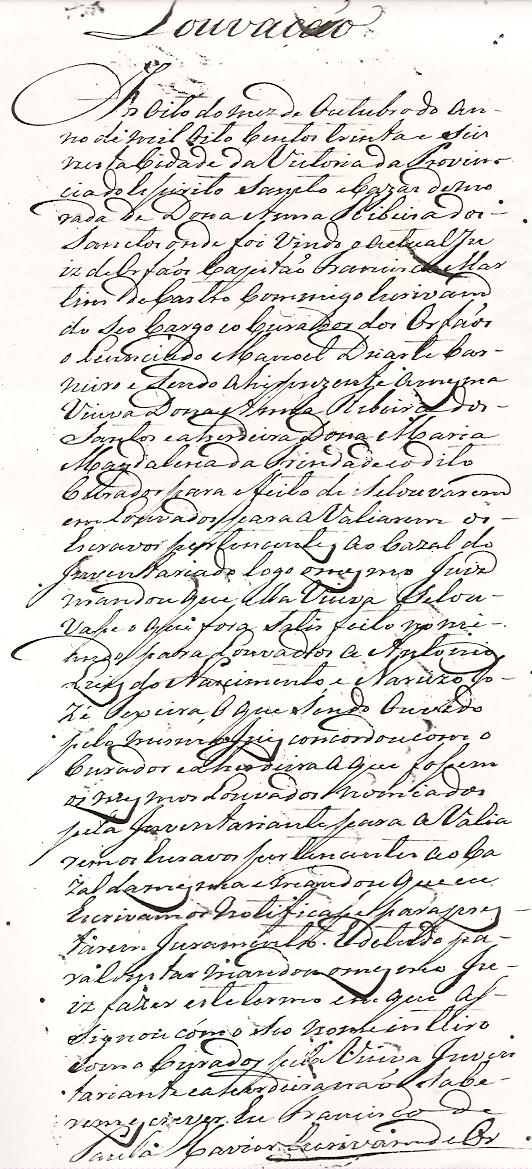 Louvação
Aos Oito do mez de Outubro do An-
no de mil Oito Centos trinta e Seis
nesta Cidade da Victoria da Provin-
cia do Espirito Sancto e Cazas de mo
rada de Dona Anna Ribeira dos
Sanctos onde foi Vindo o actual Ju
iz de Orfãos Capitão Francisco Mar
tins de Castro Commigo Escrivam
do Seo Cargo e o Curador dos Orfãos
o Licenciado Manoel Duarte Car-
neiro e Sendo ahi prezente a mesma
Viuva Dona Anna Ribeira dos
Santos e a herdeira Dona Maria
Magdalena da Trindade e o dito
Curador para effeito de Se louvarem
em Louvados para a Valiarem os
Escravos pertencentes ao Cazal do
Inventariado logo o mesmo Juiz
mandou que ella Viuva Se lou-
vase o que fora Satisfeito nomi-
hando para Louvados a Antonio
do Nascimento e Narcizo Jo-
zé Texeira, O que Sendo Ouvido
pelo mesmo Juiz concordou com o
Curador e a herdeira a que fossem
os mesmos Louvados nomiados
pela Inventariante para a Valia
rem os Escravos pertencentes ao Ca
zal da mesma e mandou que eu
Escrivam os Notificase para pres-
tarem Juramento. E de tudo pa-
ra Constar mandou o mesmo Ju-
iz fazer este termo em que as-
signou com o Seo nome inteiro
com o Curador pela Viuva Inven
tariante e a herdeira não Sabe-
rem escrever. Eu Francisco de
Paula Xavier Escrivam de Or